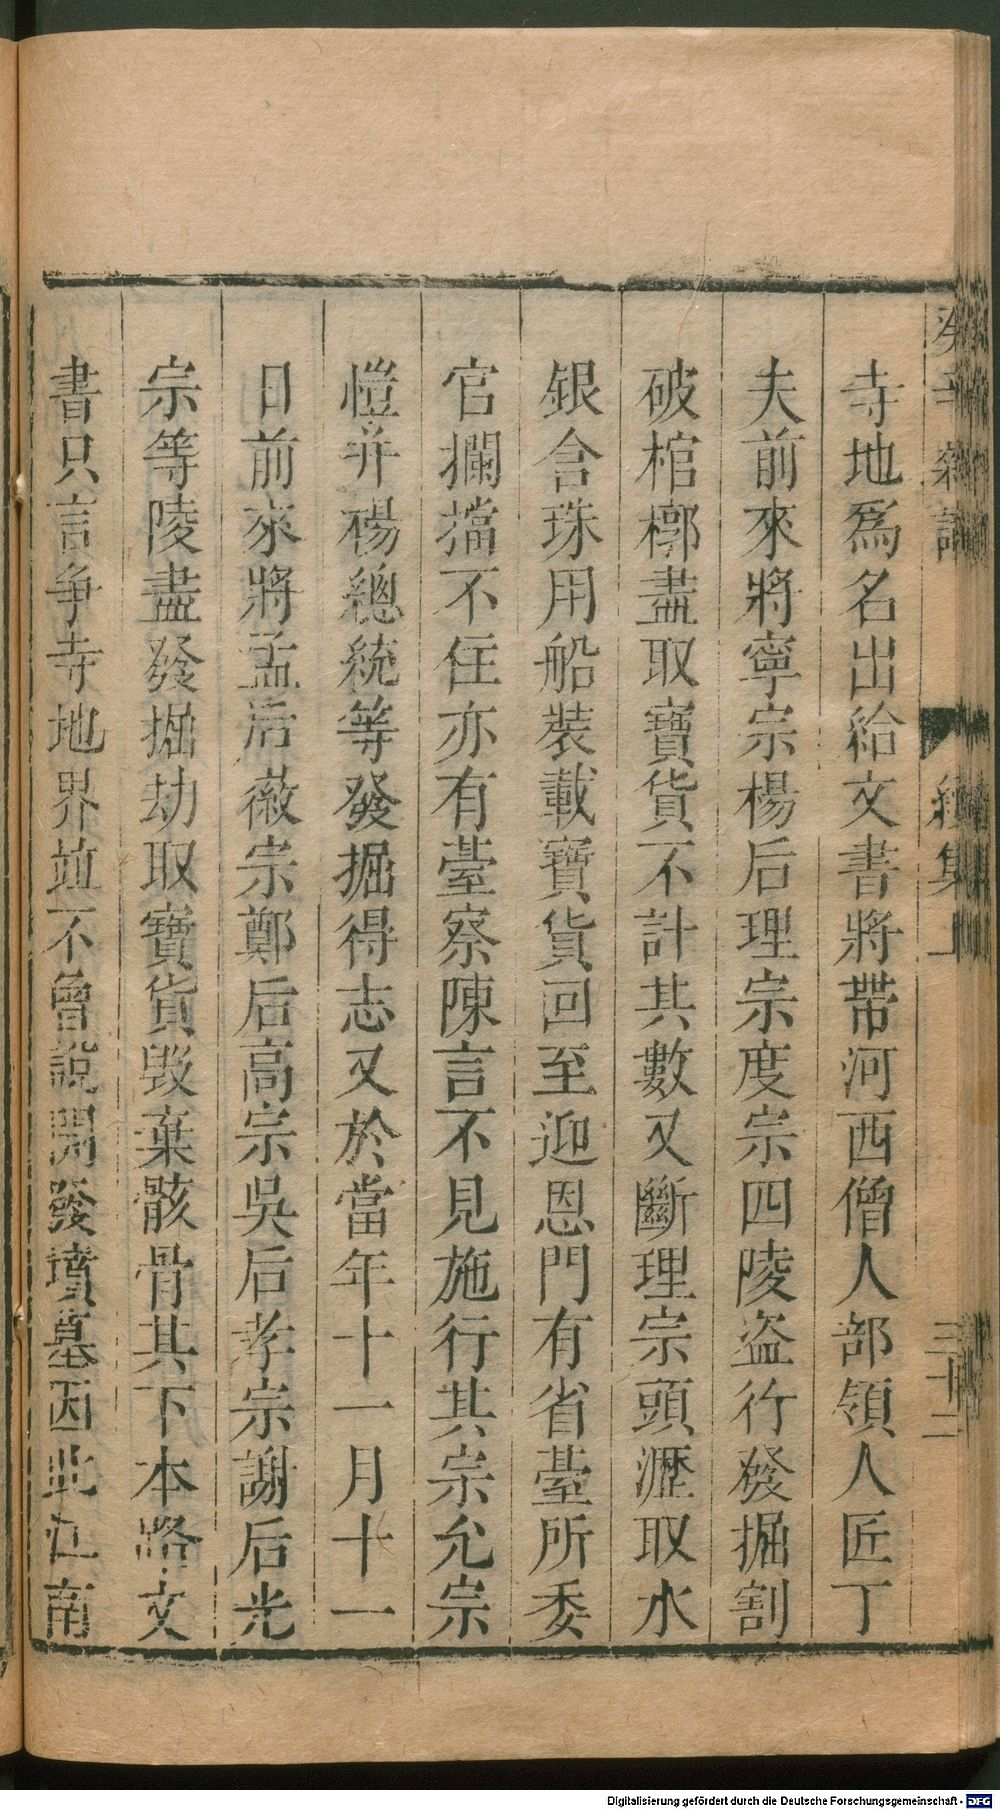 寺地爲名出給文書將帶河西僧人部領人匠丁
夫前來將寧宗楊后理宗度宗四陵盗行發掘割
破棺槨盡取寶貨不計其數又斷理宗頭瀝取水
銀含珠用船裝載寶貨回至迎恩門有省臺所委
官攔擋不住亦有臺察陳言不見施行其宗允宗
愷并楊總統等發掘得志又於當年十一月十一
日前來將孟后薇宗鄭后高宗吳后孝宗謝后光
宗等陵盡發掘劫取寶貨毀棄骸骨其下本路文
書只言争寺地界竝不曾說開發墳墓因此江南
續集上
三十二
Digitalisierung gefördert durch die Deutsche Forschungsgemeinschaft - DFG